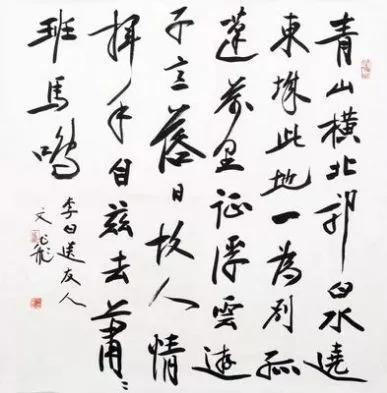 青山橫北郭白水遶
東城此地一為別孤
蓬萬里征浮雲遊
子意落日故人情
揮手自茲去蕭〻
班馬鳴
李白送友人
文